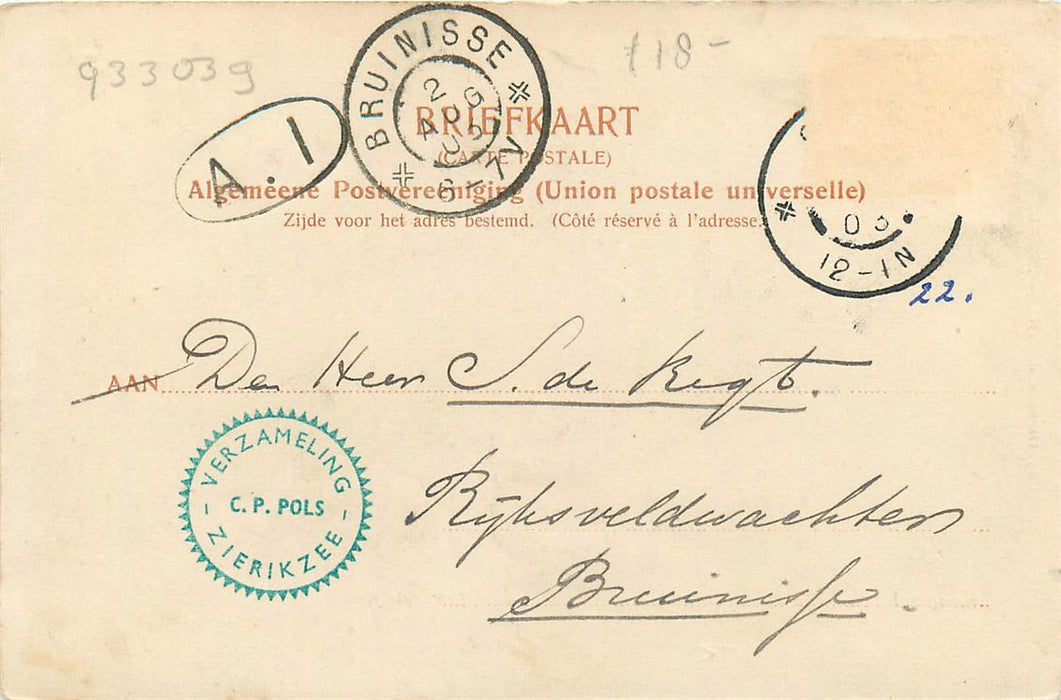 933039
f 18-
A.I
BRUINISSE
2
AUG
03
6-7V
BRIEFKAART
(CARTE POSTALE)
Algemeene Postvereeniging (Union postale universelle)
Zijde voor het adres bestemd. (Côté réservé à l'adresse.)
03
12-1N
22.
AAN Den Heer S. de Kegt.
VERZAMELING
C. P. POLS
ZIERIKZEE
Rijksveldwachter
Bruinisse.